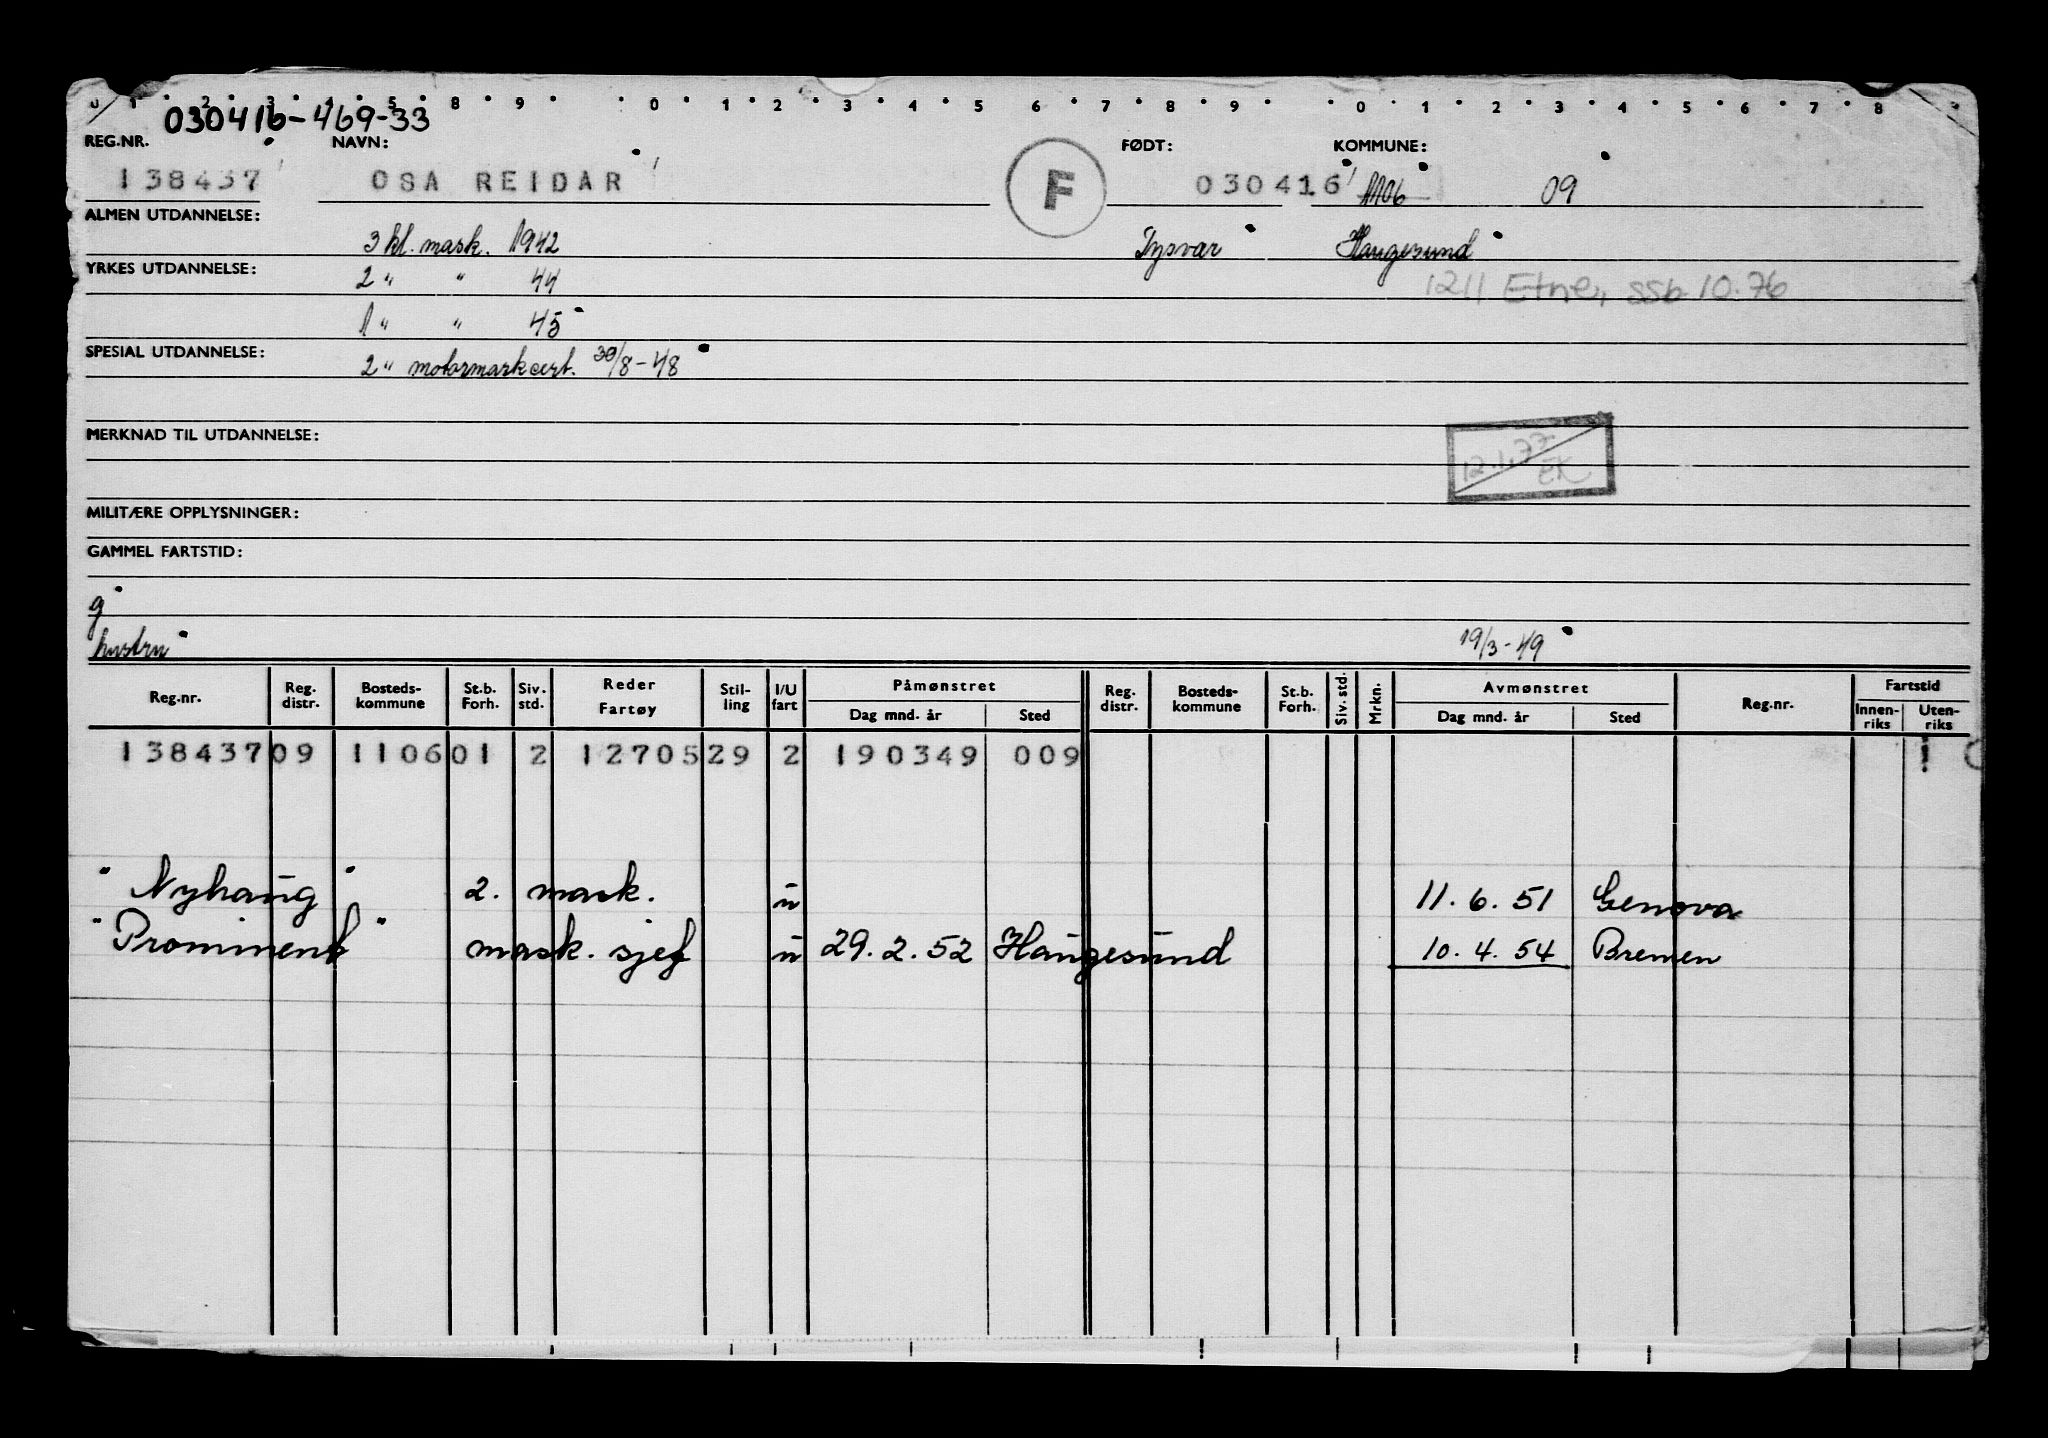 0 1 2 3 4 5 8 9 0 1 2 3 4 5 6 7 8 9 0 1 2 3 4 5 6 7 8
030416-469-33
REG.NR. NAVN: FØDT: KOMMUNE:
138437 OSA REIDAR F 030416 1106 09
ALMEN UTDANNELSE:
3 kl. mask. 1942 Tysvær Haugesund
YRKES UTDANNELSE: 2 " " 44 1211 Etne, ssb 10.76
1 " " 45
SPESIAL UTDANNELSE: 2 " motormaskcert. 30/8-48
MERKNAD TIL UTDANNELSE:
12.1.77 EK
MILITÆRE OPPLYSNINGER:
GAMMEL FARTSTID:
g
hustru 19/3-49
Reg.nr. Reg. distr. Bosteds-kommune St.b. Forh. Siv. std. Reder Fartøy Stil-ling I/U fart Påmønstret Dag mnd. år Sted Reg. distr. Bosteds-kommune St.b. Forh. Siv. std. Mrkn. Avmønstret Dag mnd. år Sted Reg.nr. Fartstid Innen-riks Uten-riks
138437 09 1106 01 2 12705 29 2 190349 009
"Nyhaug" 2. mask. u 11.6.51 Genova
"Prominent" mask. sjef u 29.2.52 Haugesund 10.4.54 Bremen